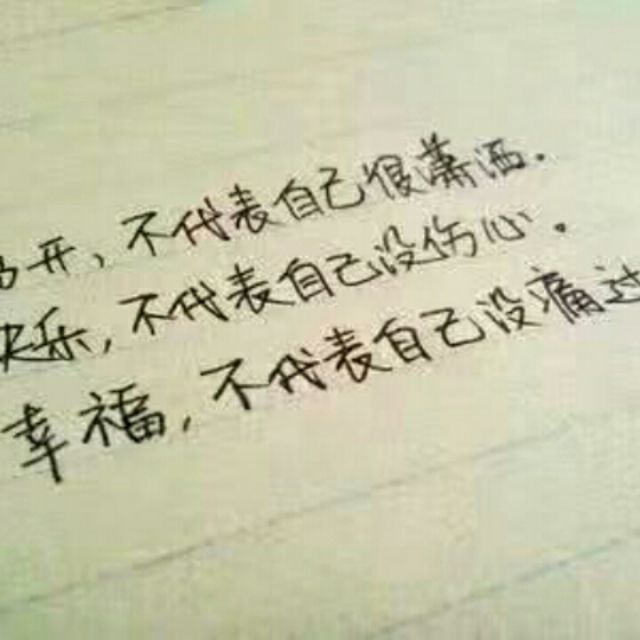 开，不代表自己很潇洒.
快乐，不代表自己没伤心.
幸福，不代表自己没痛过